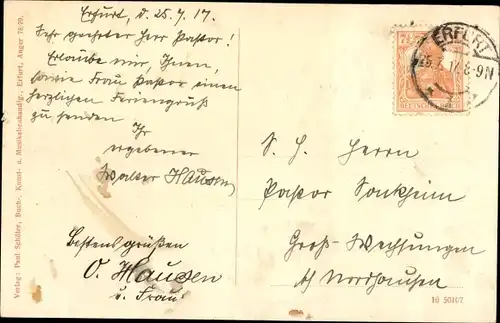 Erfurt, d. 25.7.17.
Sehr geehrter Herr Pastor!
Erlaube mir, Ihnen,
sowie Frau Pastor einen
herzlichen Feriengruß
zu senden
Ihr
ergebener
Walter Hausen
Bestens grüßen
O. Hausen
u. Frau.
S. H. Herrn
Pastor
Groß-Wechsungen
b/ Nordhausen
ERFURT
8-9N
DEUTSCHES REICH
Verlag: Paul Schiller, Buch-, Kunst- u. Musikalienhandlg., Erfurt, Anger 78/79.
16 50407